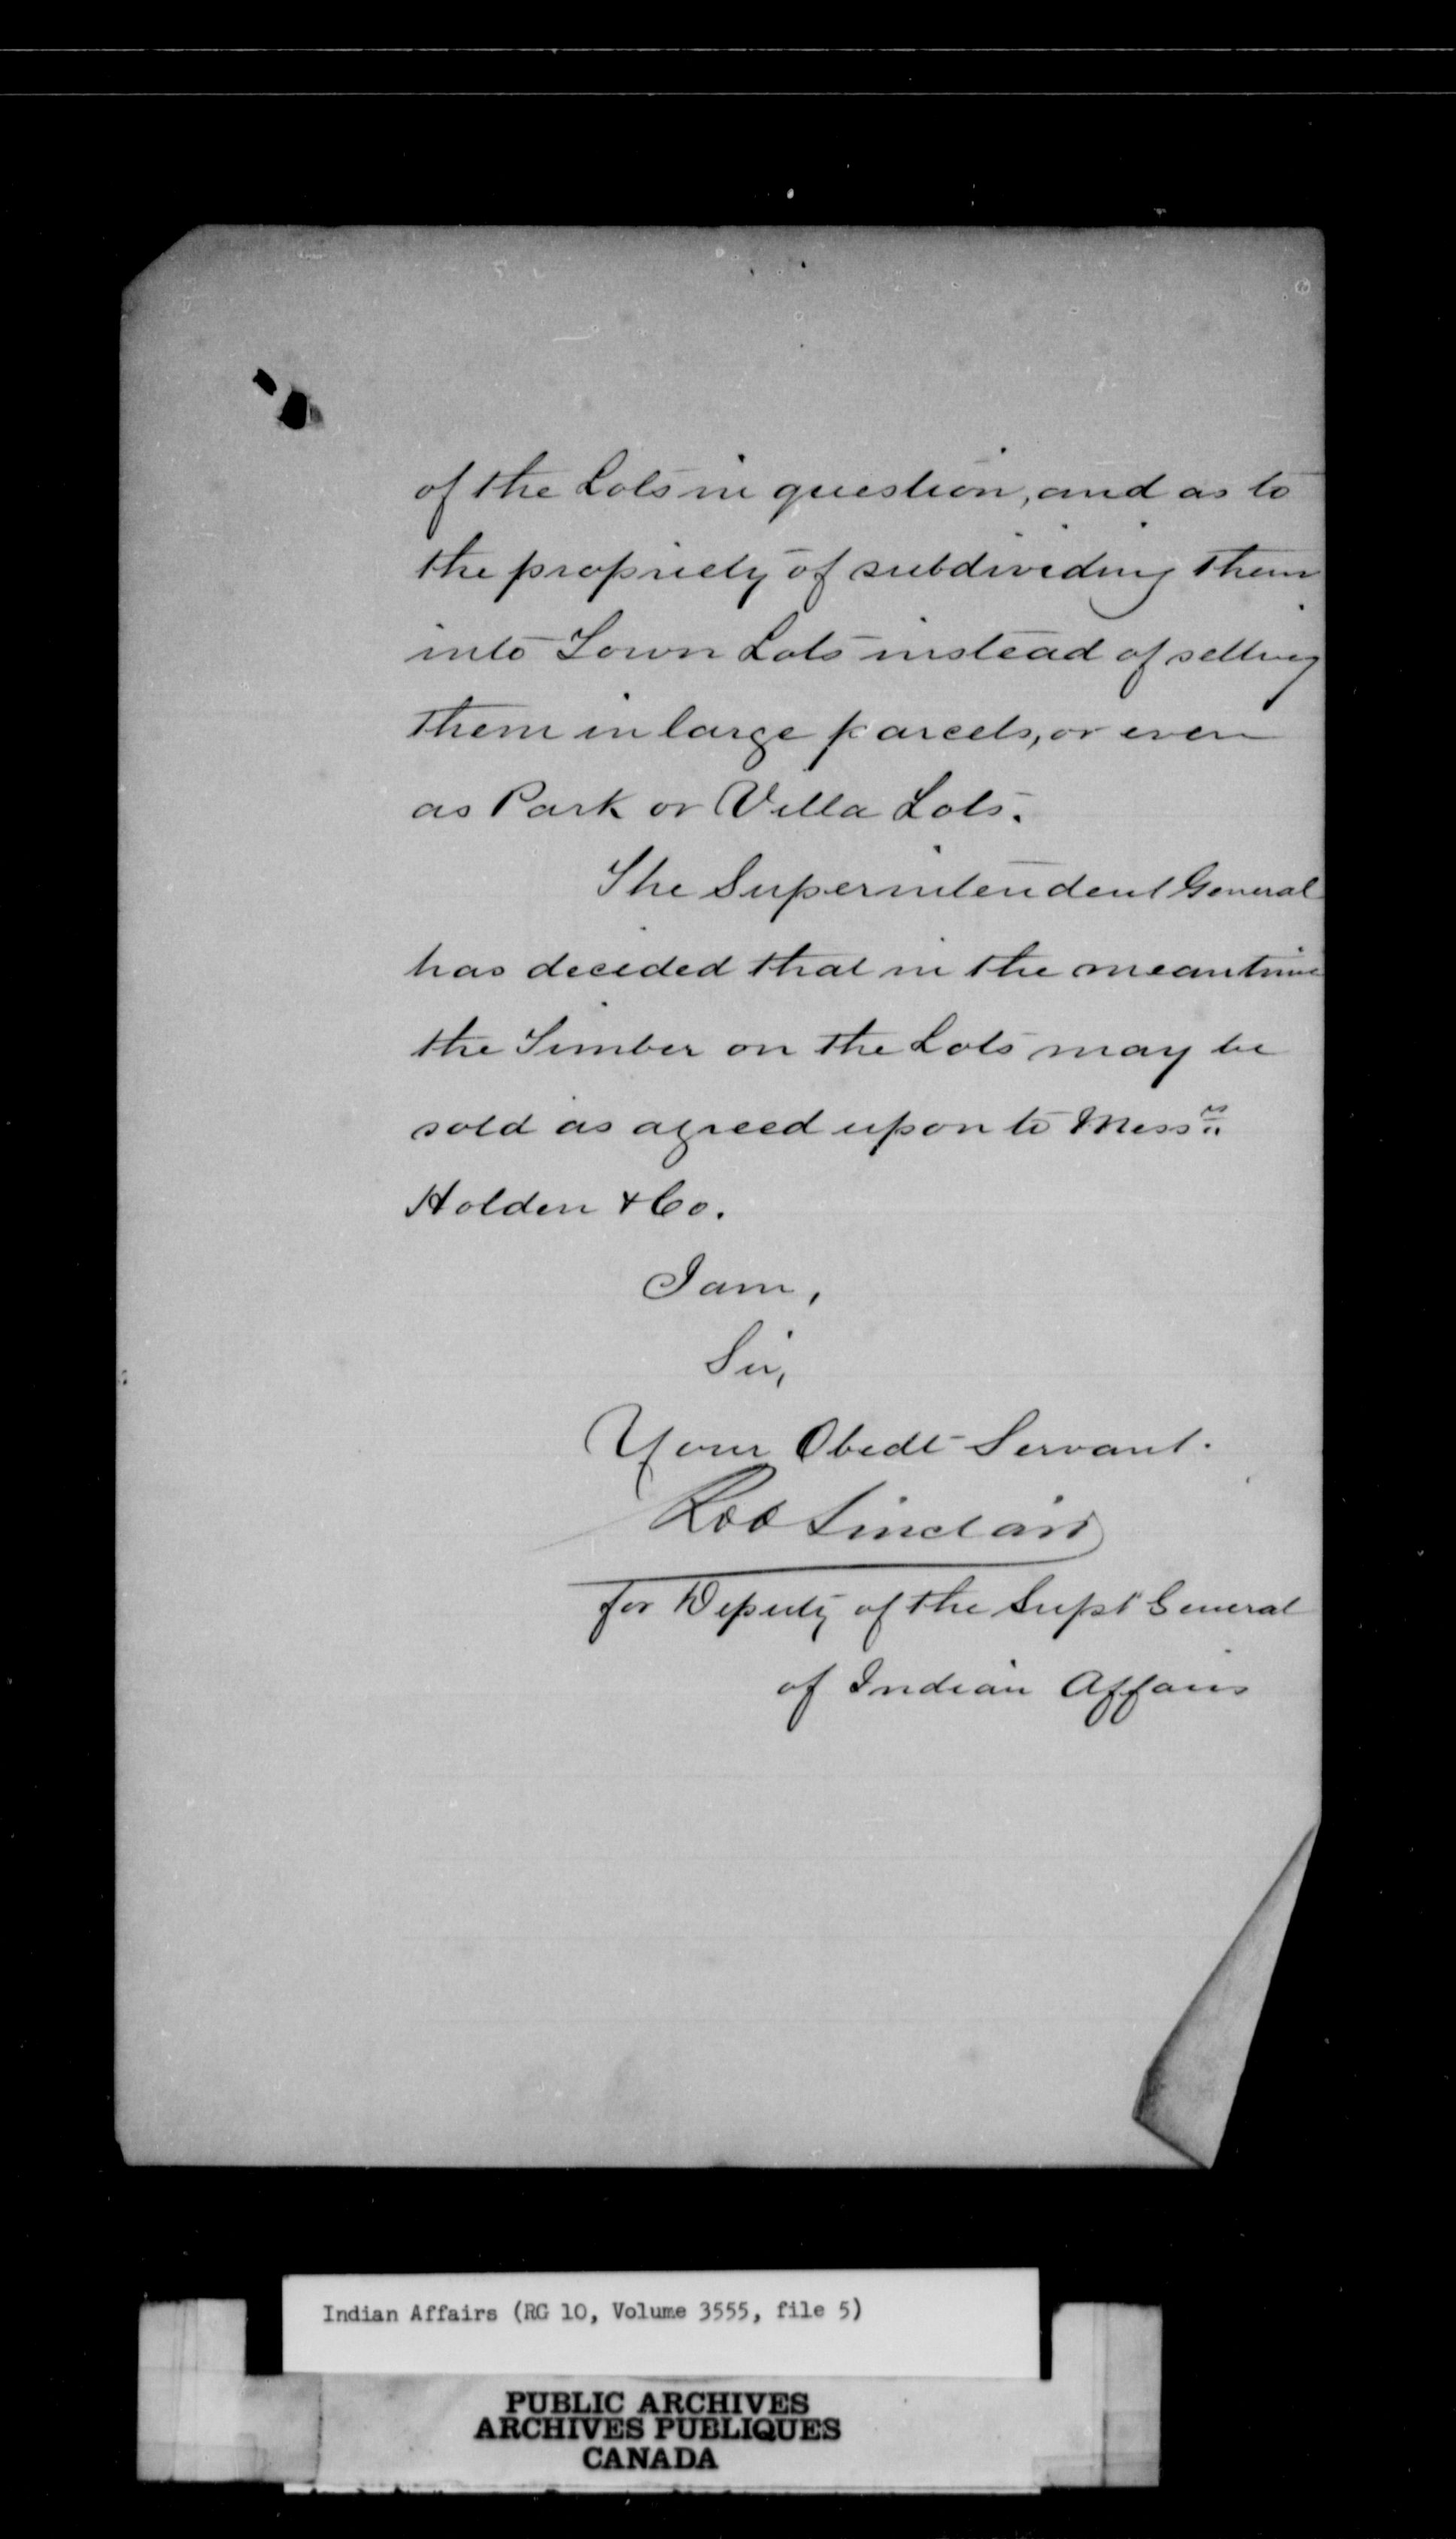 of the Lots in question, and as to
the propriety of subdividing them
into Town Lots instead of selling
them in large parcels, or even
as Park or Villa Lots.
The Superintendent General
has decided that in the meantime
the Timber on the Lots may be
sold as agreed upon to Messrs
Holden & Co.
I am,
Sir,
Your Obedt Servant.
Rob Sinclair
for Deputy of the Supt General
of Indian Affairs
Indian Affairs (RG 10, Volume 3555, file 5)
PUBLIC ARCHIVES
ARCHIVES PUBLIQUES
CANADA